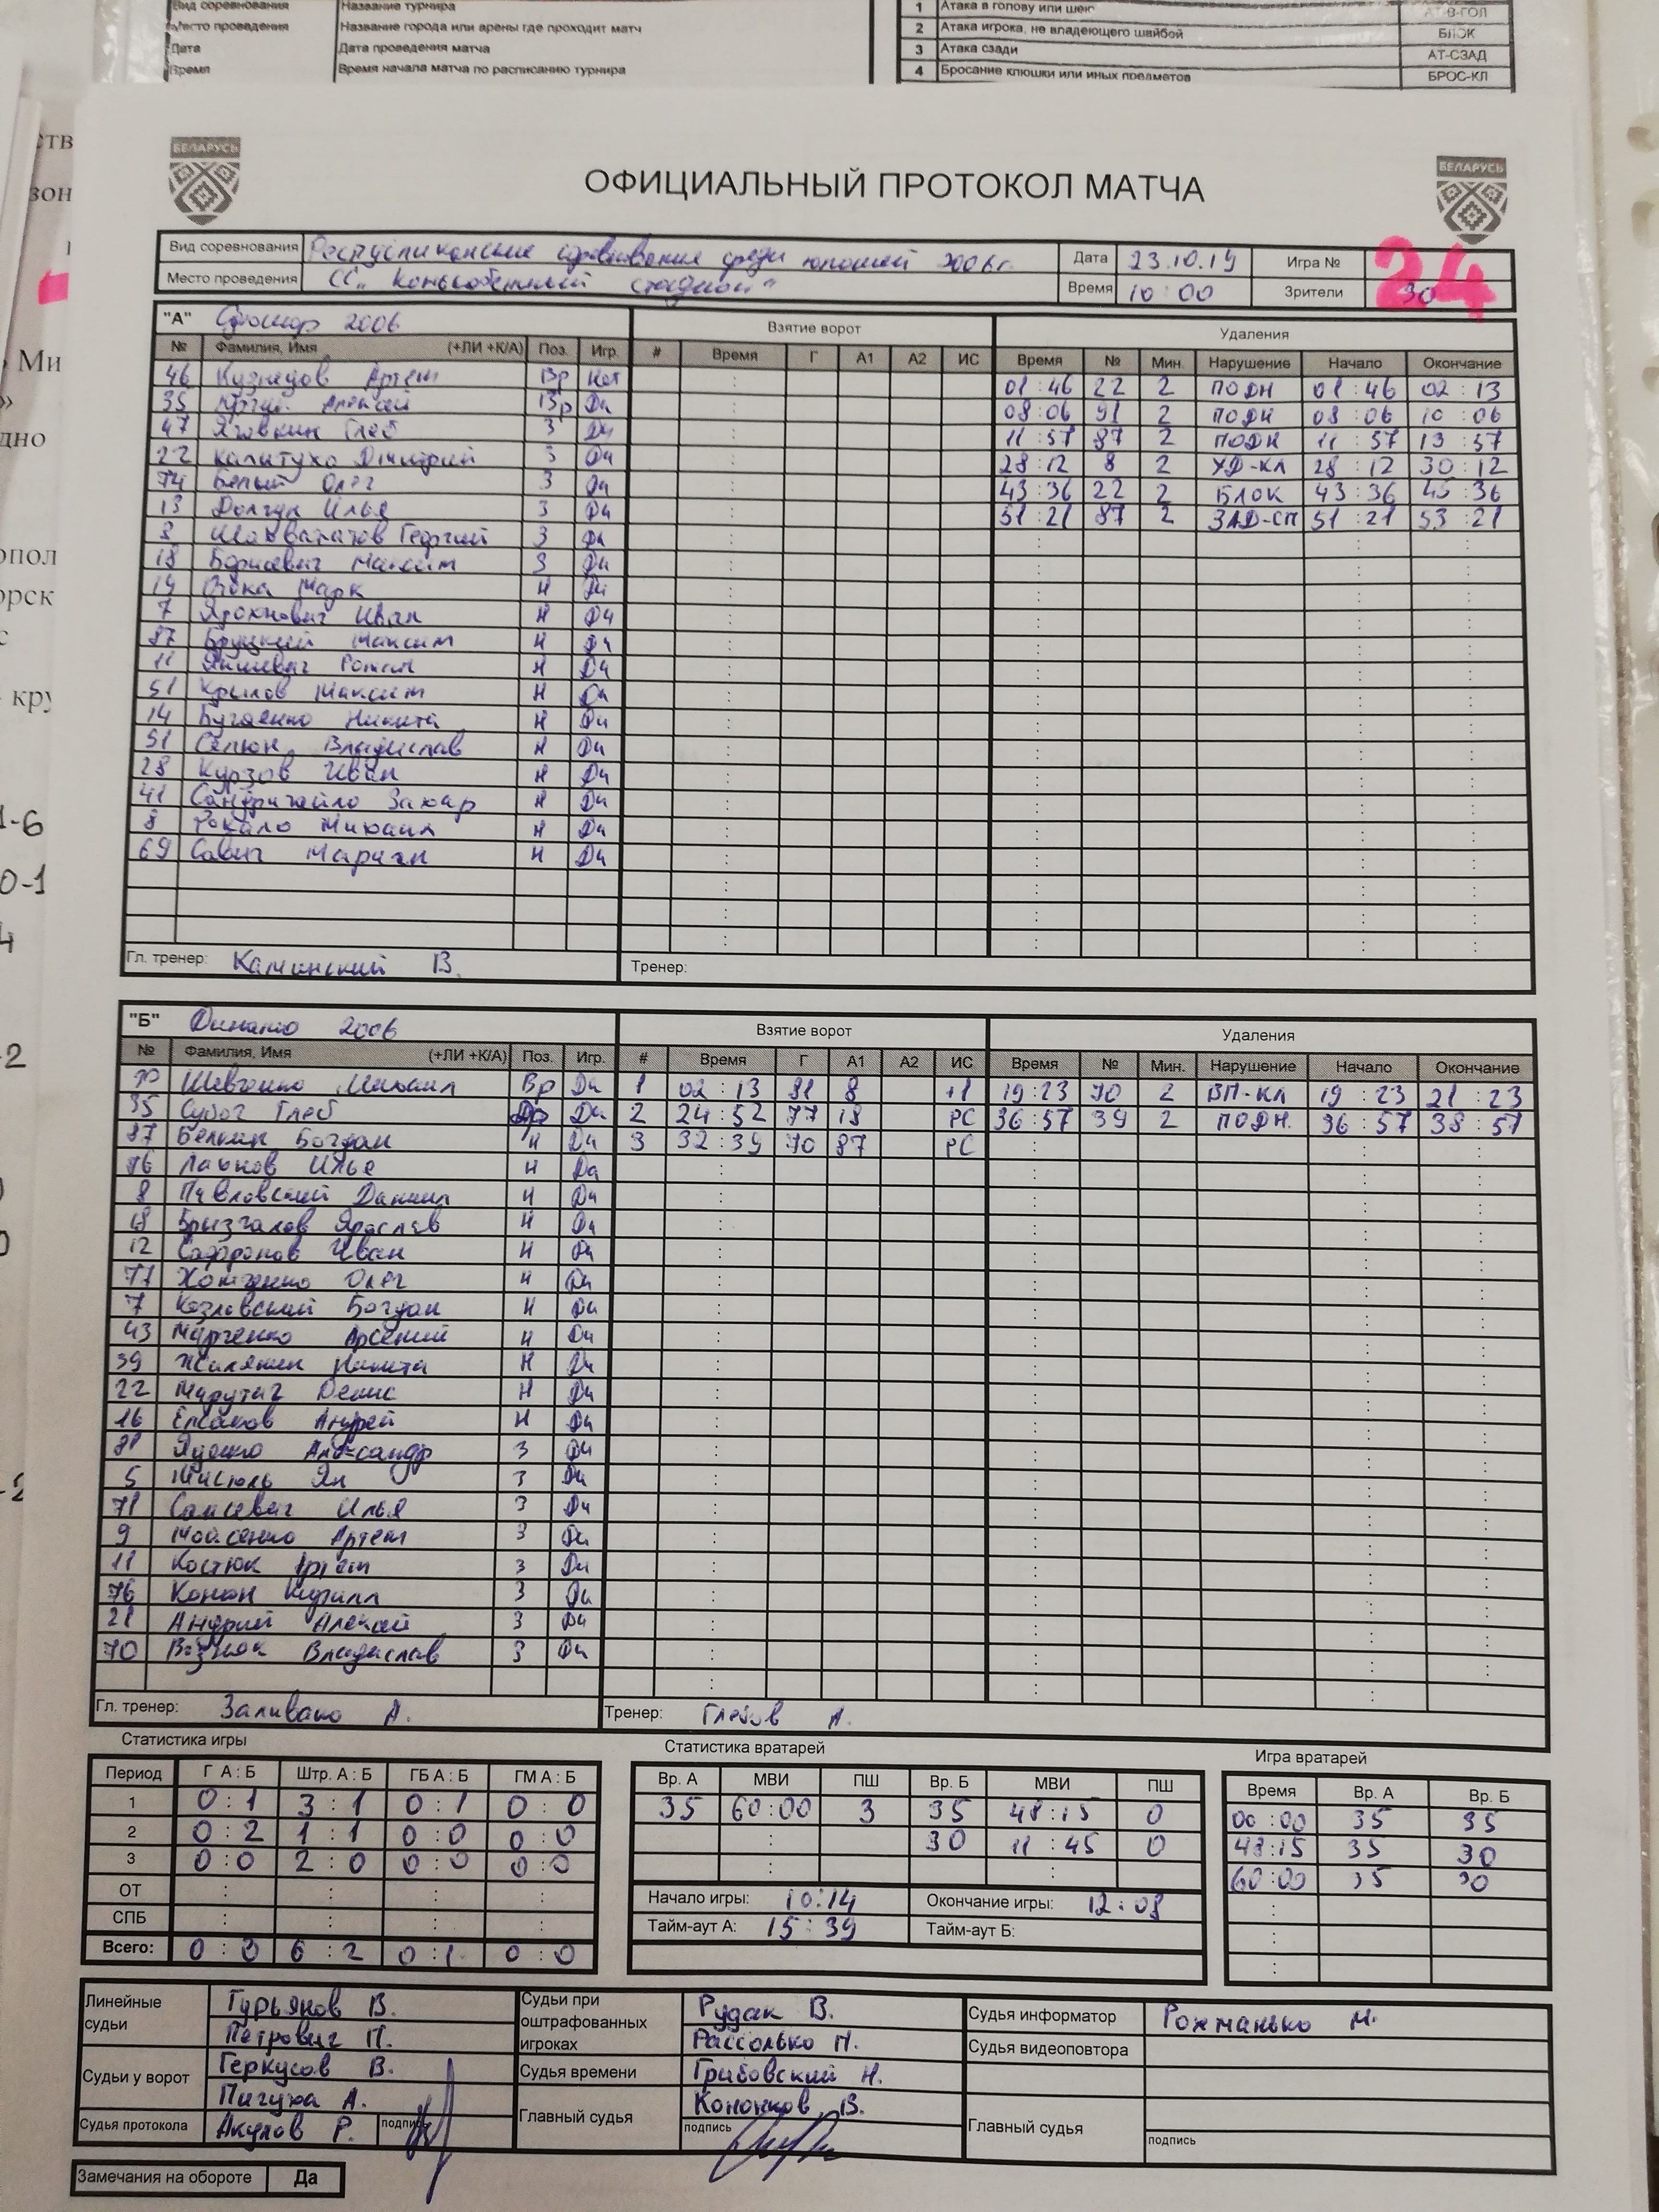 Вид соревнования Название турнира
Место проведения Название города или арены где проходит матч
Дата Дата проведения матча
Время Время начала матча по расписанию турнира
1 Атака в голову или шею АТ-В-ГОЛ
2 Атака игрока, не владеющего шайбой БЛОК
3 Атака сзади АТ-СЗАД
4 Бросание клюшки или иных предметов БРОС-КЛ
БЕЛАРУСЬ
БЕЛАРУСЬ
ОФИЦИАЛЬНЫЙ ПРОТОКОЛ МАТЧА
Вид соревнования Республиканские соревнования среди юношей 2006 г. Дата 23.10.19 Игра № 24
Место проведения СС "Конькобежный стадион" Время 10:00 Зрители 30
"А" 2006 Взятие ворот Удаления
№ Фамилия, Имя (+ЛИ +К/А) Поз. Игр. # Время Г А1 А2 ИС Время № Мин. Нарушение Начало Окончание
46 Кузнецов Артем Вр Нет 01:46 22 2 ПОДН 01:46 02:13
35 Алексей Вр Да 08:06 91 2 ПОДН 08:06 10:06
47 Яговкин Глеб З Да 11:57 87 2 ПОДН 11:57 13:57
22 Калитухо Дмитрий З Да 28:12 8 2 УД-КЛ 28:12 30:12
74 Белый Олег З Да 43:36 22 2 БЛОК 43:36 45:36
13 Долгук Илья З Да 51:21 87 2 ЗАД-СП 51:21 53:21
8 Георгий З Да
18 Борисевич Максим З Да
19 Марк Н Да
7 Ярохнович Иван Н Да
87 Бруцкий Максим Н Да
11 Янцевич Роман Н Да
51 Крылов Максим Н Да
14 Бугаенко Никита Н Да
51 Селюн Владислав Н Да
28 Курзов Иван Н Да
41 Сандригайло Захар Н Да
8 Рокало Михаил Н Да
69 Савич Мариан Н Да
Гл. тренер: Каминский В. Тренер:
"Б" Динамо 2006 Взятие ворот Удаления
№ Фамилия, Имя (+ЛИ +К/А) Поз. Игр. # Время Г А1 А2 ИС Время № Мин. Нарушение Начало Окончание
Шевченко Михаил Вр Да 1 02:13 81 8 +1 19:23 70 2 ВП-КЛ 19:23 21:23
35 Субоч Глеб Да 2 24:52 77 18 РС 36:57 39 2 ПОДН. 36:57 38:57
87 Белкин Богдан Н Да 3 32:39 70 87 РС
Илья Н Да
8 Павловский Даниил Н Да
18 Брызгалов Ярослав Н Да
12 Сафронов Иван Н Да
77 Хомченко Олег Н Да
7 Козловский Богдан Н Да
43 Марченко Арсений Н Да
39 Жилянин Никита Н Да
22 Марутич Денис Н Да
16 Елсаков Андрей Н Да
81 Яценко Александр З Да
5 Мисюль Ян З Да
71 Санцевич Илья З Да
9 Мойсенко Артем З Да
11 Костюк Артем З Да
76 Конон Кирилл З Да
21 Андрий Алексей З Да
70 Возняк Владислав З Да
Гл. тренер: Заливако А. Тренер: Глебов А.
Статистика игры Статистика вратарей Игра вратарей
Период Г А : Б Штр. А : Б ГБ А : Б ГМ А : Б Вр. А МВИ ПШ Вр. Б МВИ ПШ Время Вр. А Вр. Б
1 0:1 3:1 0:1 0:0 35 60:00 3 35 48:15 0 00:00 35 35
2 0:2 1:1 0:0 0:0 30 11:45 0 48:15 35 30
3 0:0 2:0 0:0 0:0 60:00 35 30
ОТ Начало игры: 10:14 Окончание игры: 12:08
СПБ Тайм-аут А: 15:39 Тайм-аут Б:
Всего: 0:3 6:2 0:1 0:0
Линейные судьи Гурьянов В. Судьи при оштрафованных игроках Рудак В. Судья информатор Рожманько Н.
Петрович П. Рассолько П. Судья видеоповтора
Судьи у ворот Геркусов В. Судья времени Грибовский Н.
Пигуха А. Главный судья Кононков В. Главный судья
Судья протокола Акулов Р. подпись подпись подпись
Замечания на обороте Да